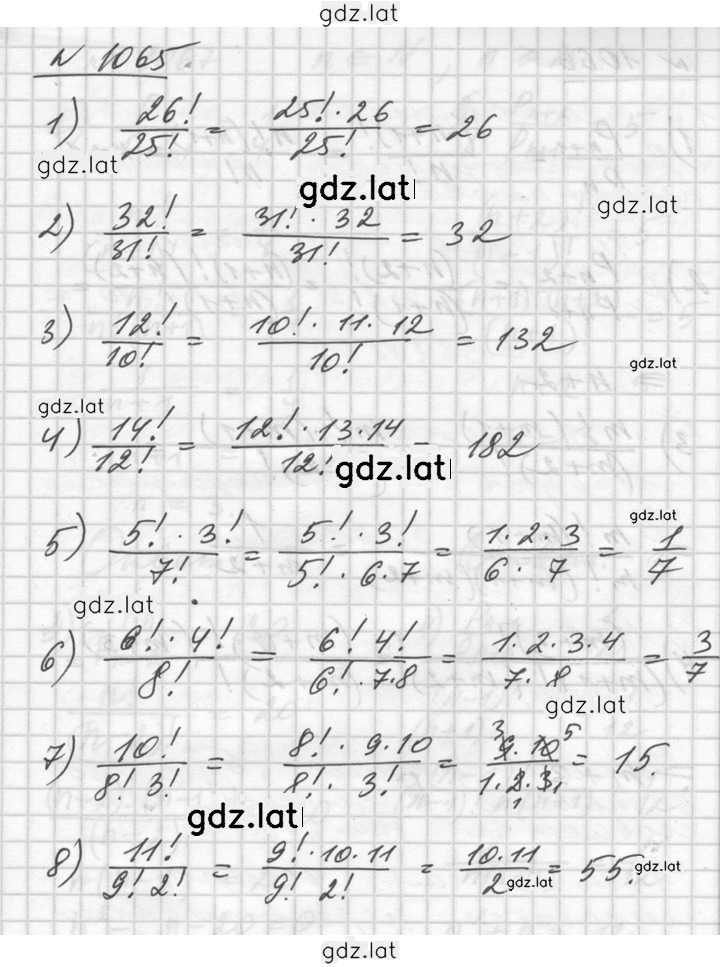 gdz.lat
№ 1065.
1) 26!/25! = 25!·26/25! = 26
gdz.lat
gdz.lat
gdz.lat
2) 32!/31! = 31!·32/31! = 32
3) 12!/10! = 10!·11·12/10! = 132
gdz.lat
gdz.lat
4) 14!/12! = 12!·13·14/12! = 182
gdz.lat
gdz.lat
5) 5!·3!/7! = 5!·3!/5!·6·7 = 1·2·3/6·7 = 1/7
gdz.lat
6) 6!·4!/8! = 6!4!/6!·7·8 = 1·2·3·4/7·8 = 3/7
gdz.lat
7) 10!/8!3! = 8!·9·10/8!·3! = 9·10/1·2·3 = 15.
gdz.lat
8) 11!/9!2! = 9!·10·11/9!2! = 10·11/2 = 55.
gdz.lat
gdz.lat
gdz.lat